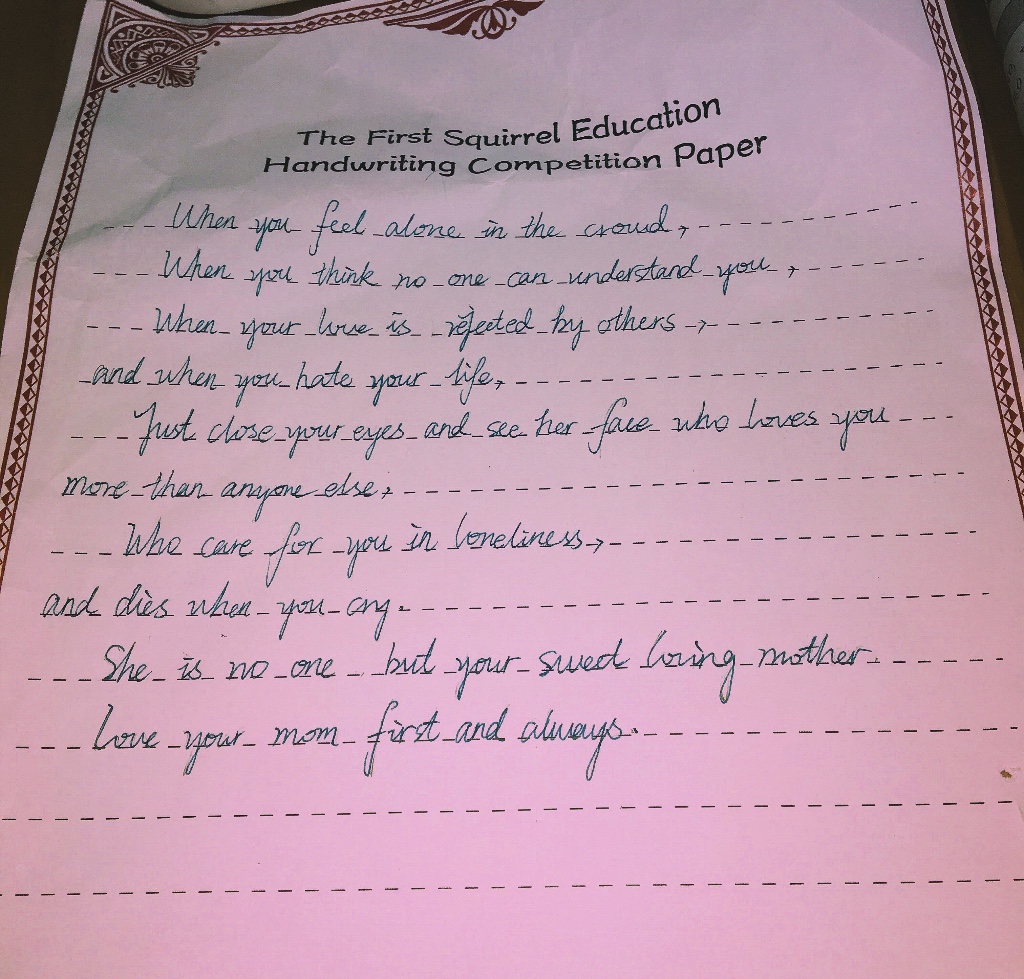 The First Squirrel Education
Handwriting Competition Paper
When you feel alone in the crowd,
When you think no one can understand you,
When your love is rejected by others,
and when you hate your life,
Just close your eyes and see her face who loves you
more than anyone else,
Who care for you in loneliness,
and dies when you cry.
She is no one but your sweet loving mother.
Love your mom first and always.